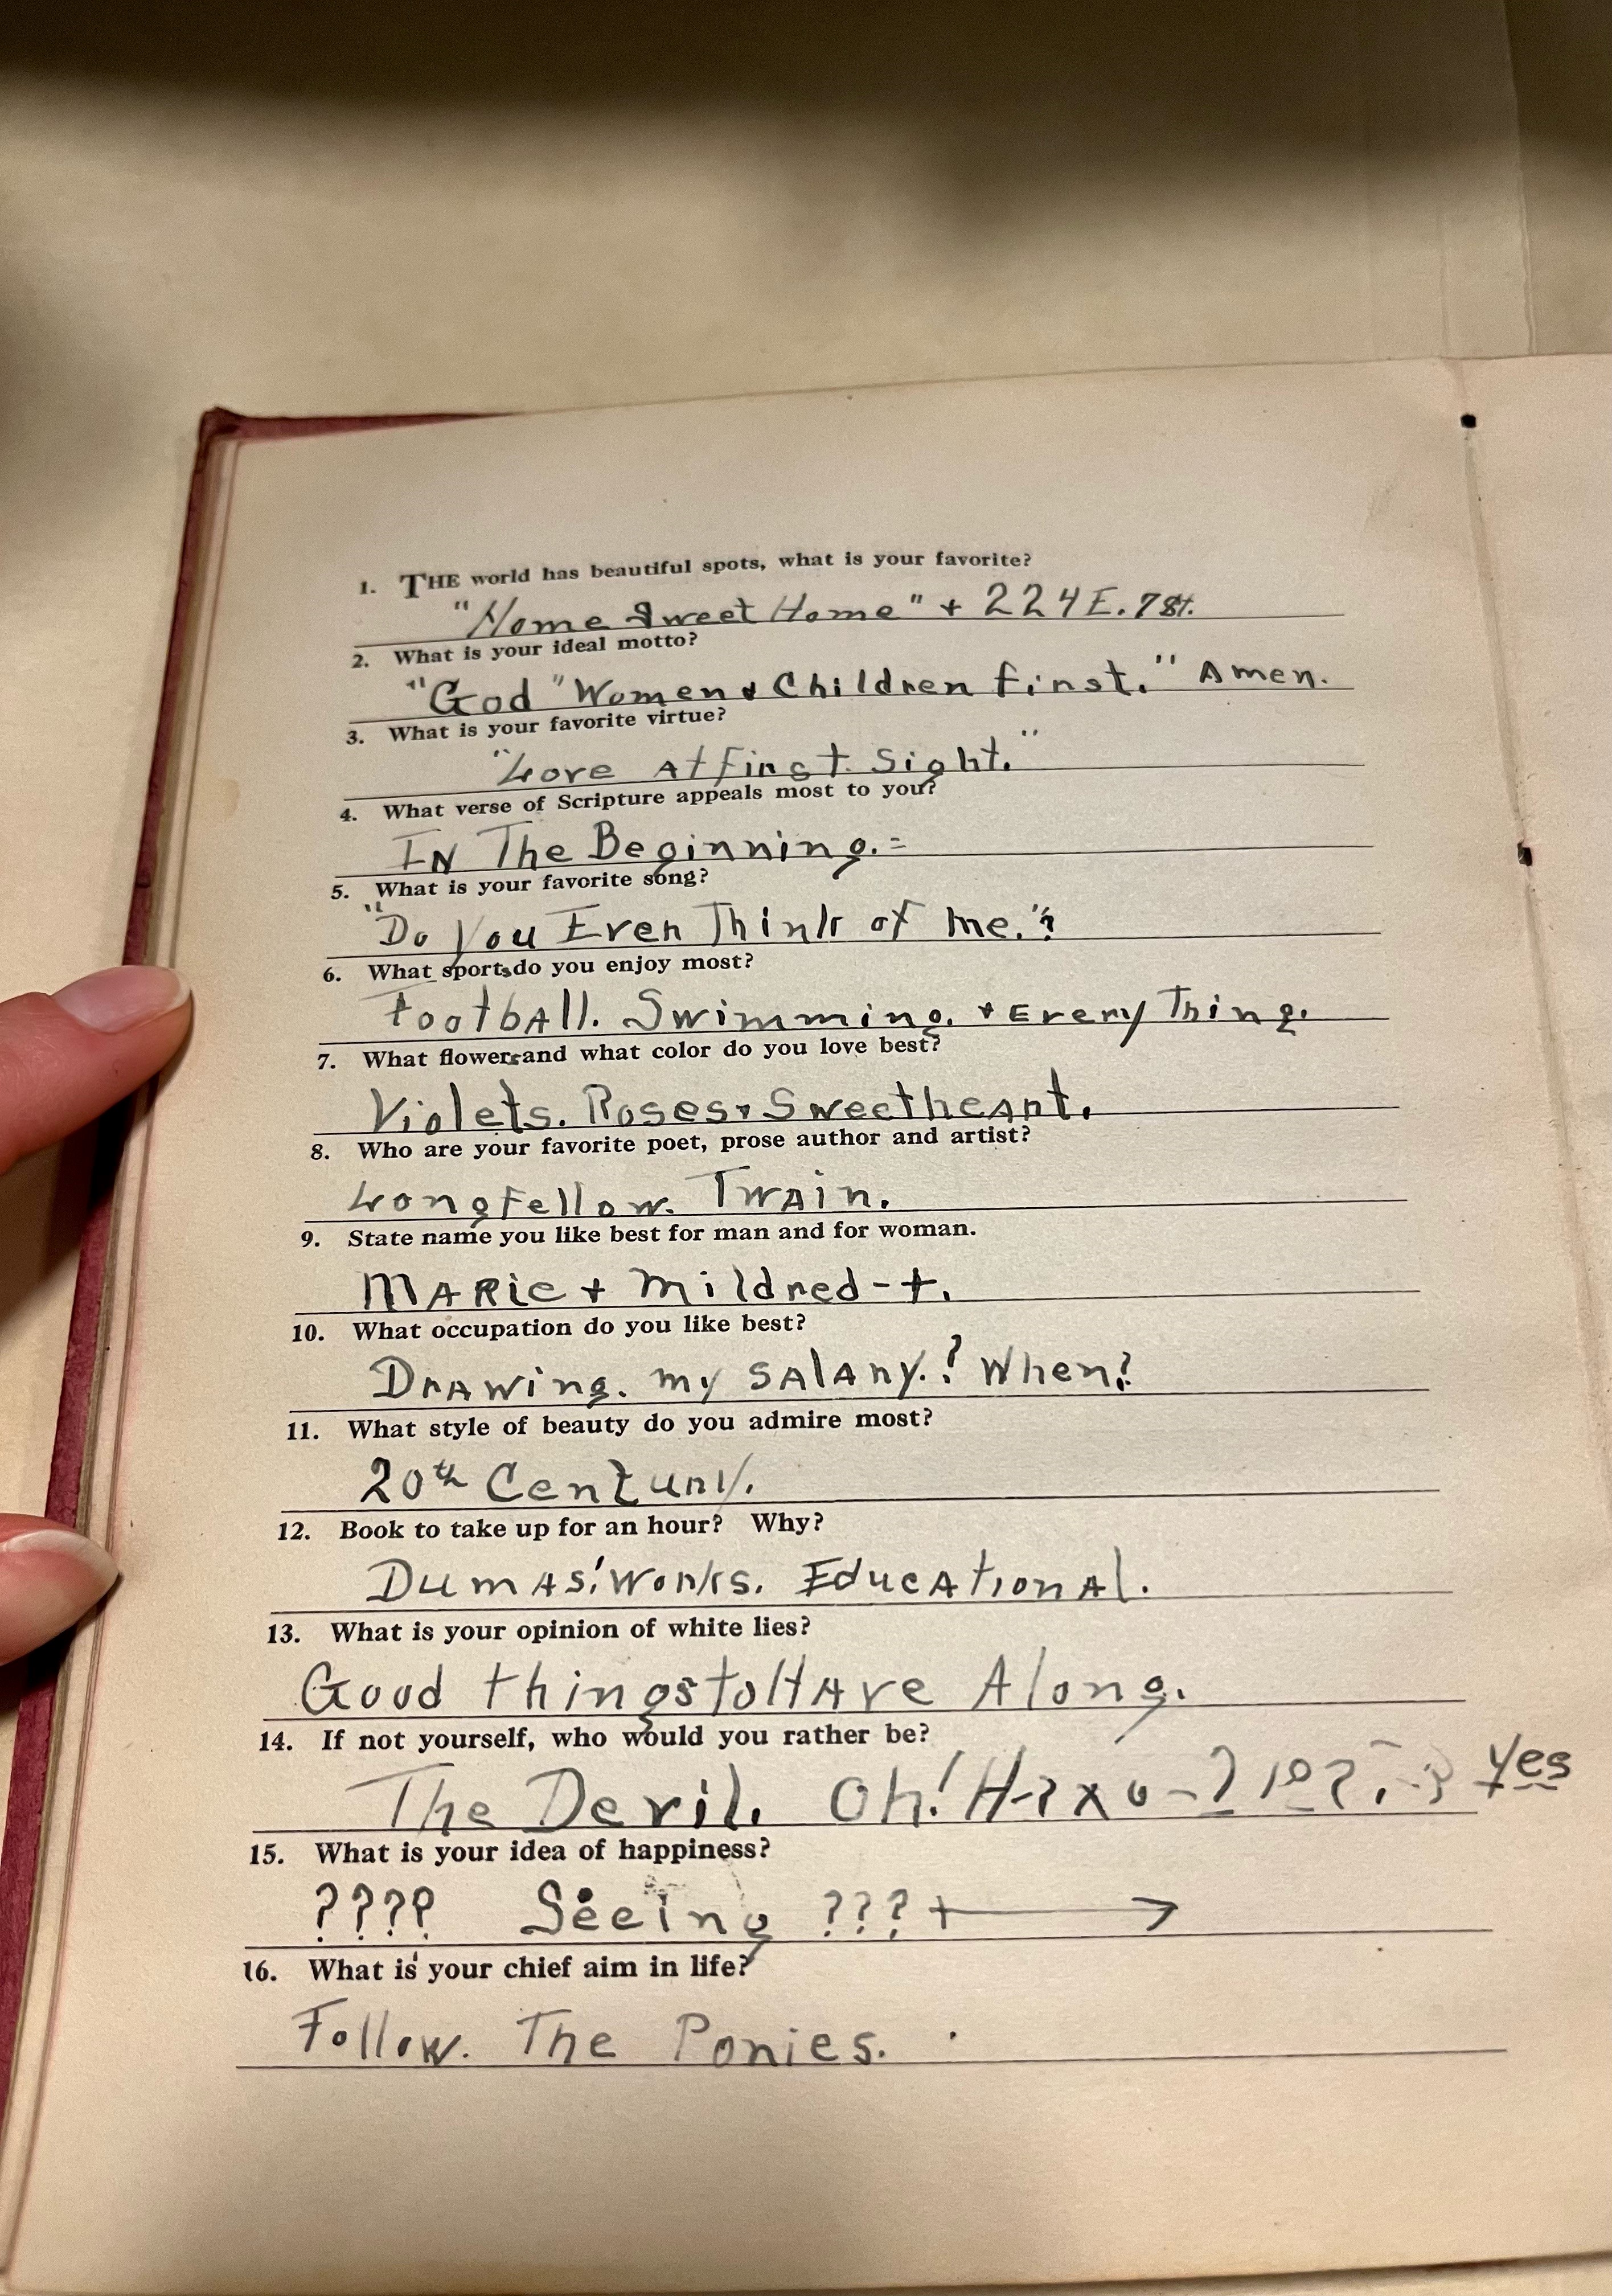 1. THE world has beautiful spots, what is your favorite?
"Home Sweet Home" + 224 E. 7 St.
2. What is your ideal motto?
"God "Women & Children first." Amen.
3. What is your favorite virtue?
"Love At First Sight."
4. What verse of Scripture appeals most to you?
IN The Beginning.=
5. What is your favorite song?
"Do You Ever Think of me."?
6. What sports do you enjoy most?
Football. Swimming. + Every Thing.
7. What flowers and what color do you love best?
Violets. Roses + Sweetheart.
8. Who are your favorite poet, prose author and artist?
Longfellow. Twain.
9. State name you like best for man and for woman.
Marie + Mildred - +.
10. What occupation do you like best?
Drawing. my salary.? When?
11. What style of beauty do you admire most?
20th Century.
12. Book to take up for an hour? Why?
Dumas' Works. Educational.
13. What is your opinion of white lies?
Good things to Have Along.
14. If not yourself, who would you rather be?
The Devil. Oh! Yes
15. What is your idea of happiness?
???? Seeing ???+
16. What is your chief aim in life?
Follow. The Ponies.